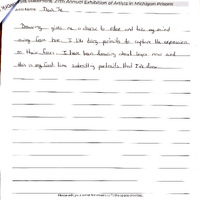 Statement, 27th Annual Exhibition of Artists in Michigan Prisons
Artist Name
Drawing gives me a chance to relax and take my mind
away from here. I like doing portraits to capture the expression
on their faces. I have been drawing about years now and
this is my first time submitting portraits that I've done.